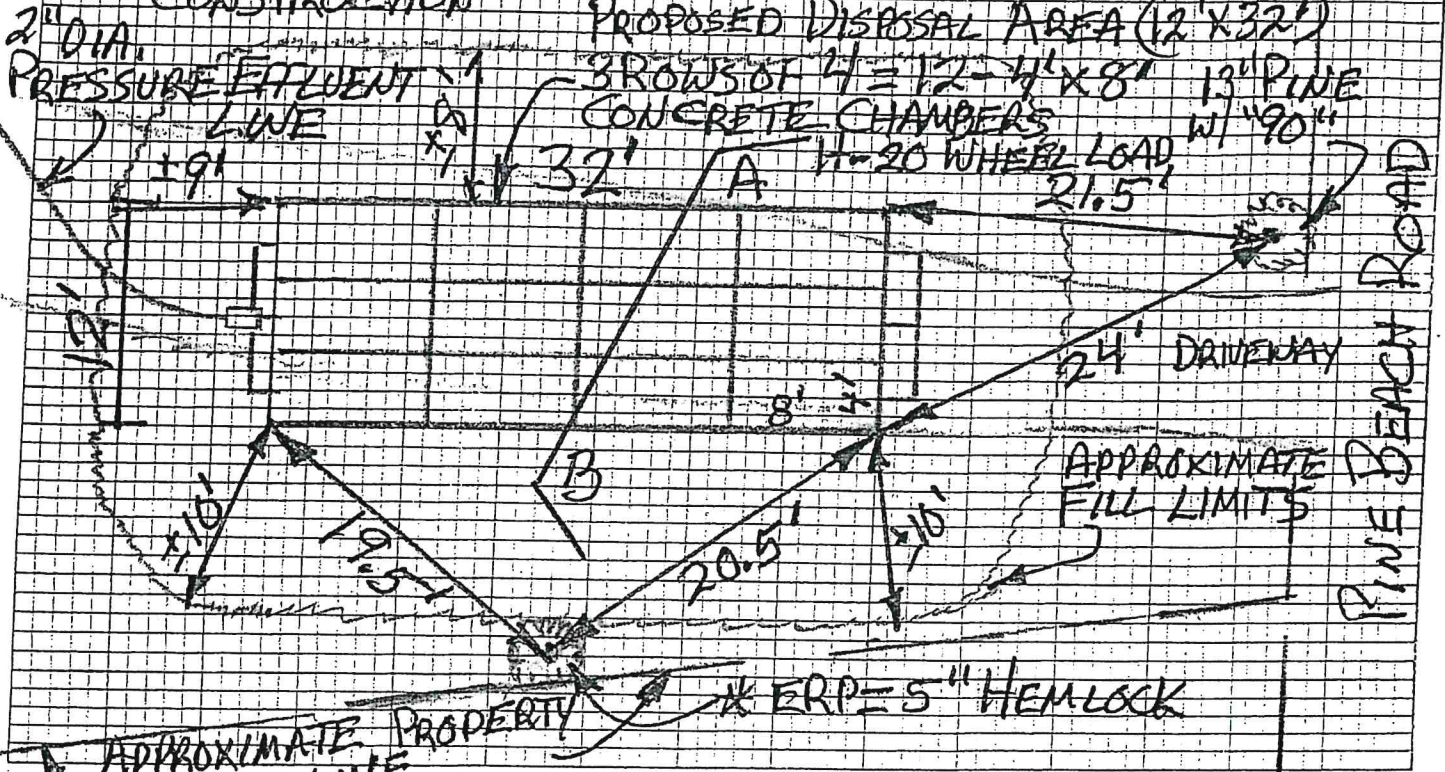 CONSTRUCTION
PROPOSED DISPOSAL AREA (12'X32')
2" DIA.
PRESSURE EFFLUENT
LINE
3 ROWS OF 4 = 12 - 4' X 8'
CONCRETE CHAMBERS
H-20 WHEEL LOAD
13" PINE
W/ "90"
±9'
32'
A
21.5'
12'
24'
DRIVEWAY
8'
4'
B
APPROXIMATE
FILL LIMITS
19.5'
20.5'
PINE BEACH ROAD
* ERP = 5" HEMLOCK
APPROXIMATE PROPERTY
LINE